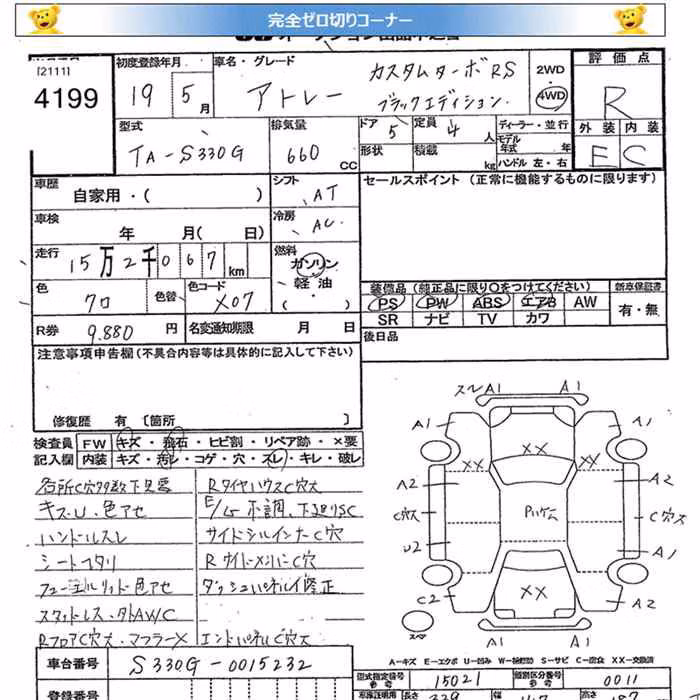 完全ゼロ切りコーナー
[2111]
4199
初度登録年月
19 5月
車名・グレード
アトレー カスタムターボRS
ブラックエディション.
2WD
・
4WD
評価点
R
外装 内装
E C
型式
TA-S330G
排気量
660 CC
ドア 5
定員 4 人
形状
積載 kg
ディーラー・並行
モデル年式 年
ハンドル 左・右
車歴
自家用・( )
シフト
AT
セールスポイント (正常に機能するものに限ります)
車検
年 月( 日)
冷房
AC
走行
15万2千067km
燃料
ガソリン
軽油
( )
色
クロ
色替
色コード
X07
装備品 (純正品に限り○をつけてください)
新車保証書
PS PW ABS エアB AW
有・無
SR ナビ TV カワ
R券
9.880 円
名変通知期限 月 日
後日品
注意事項申告欄 (不具合内容等は具体的に記入して下さい)
修復歴 有 [箇所 ]
検査員記入欄
FW キズ・飛石・ヒビ割・リペア跡・×要
内装 キズ・汚レ・コゲ・穴・スレ・キレ・破レ
各所C穴多数下見要
キズ・U・色アセ
ハンドルスレ
シートヘタリ
フューエルリッド色アセ
スタットレス・外AW/C
RフロアC穴大・マフラー×
RタイヤハウスC穴大
E/G不調、下廻りSC
サイドシルインナーC穴
RサイドメンバーC穴
ダッシュパネル修正
エンドパネルC穴大
スレA1 A1
A1 A1
XX XX XX
A2 A2
C穴大 C穴大
U2 A1
XX
C2 A2
スペア
A-キズ E-エクボ U-凹み W-補修跡 S-サビ C-腐食 XX-交換済
車台番号
S330G-0015232
登録番号
型式指定番号
参考
15021
類別区分番号
参考
0011